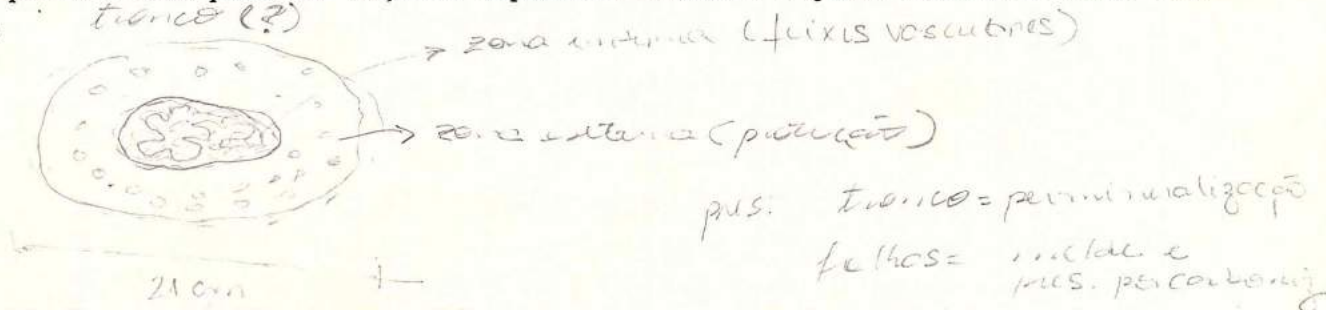 tronco (?)
zona interna (feixes vasculares)
zona externa (proteção)
pres. tronco = permineralização
folhas = molde e
pres. por carboni
21 cm